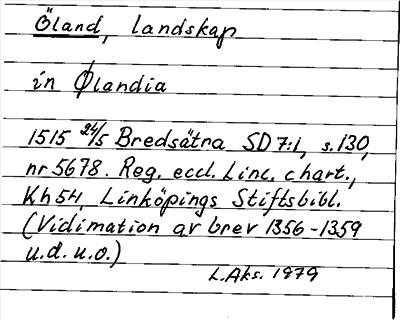 Öland, landskap
in Ølandia
1515 24/5 Bredsätra SD 7:1, s. 130,
nr 5678. Reg. eccl. Linc. chart.,
Kh 54, Linköpings Stiftsbibl.
(Vidimation av brev 1356-1359
u.d. u.o.)
L. Aks. 1979